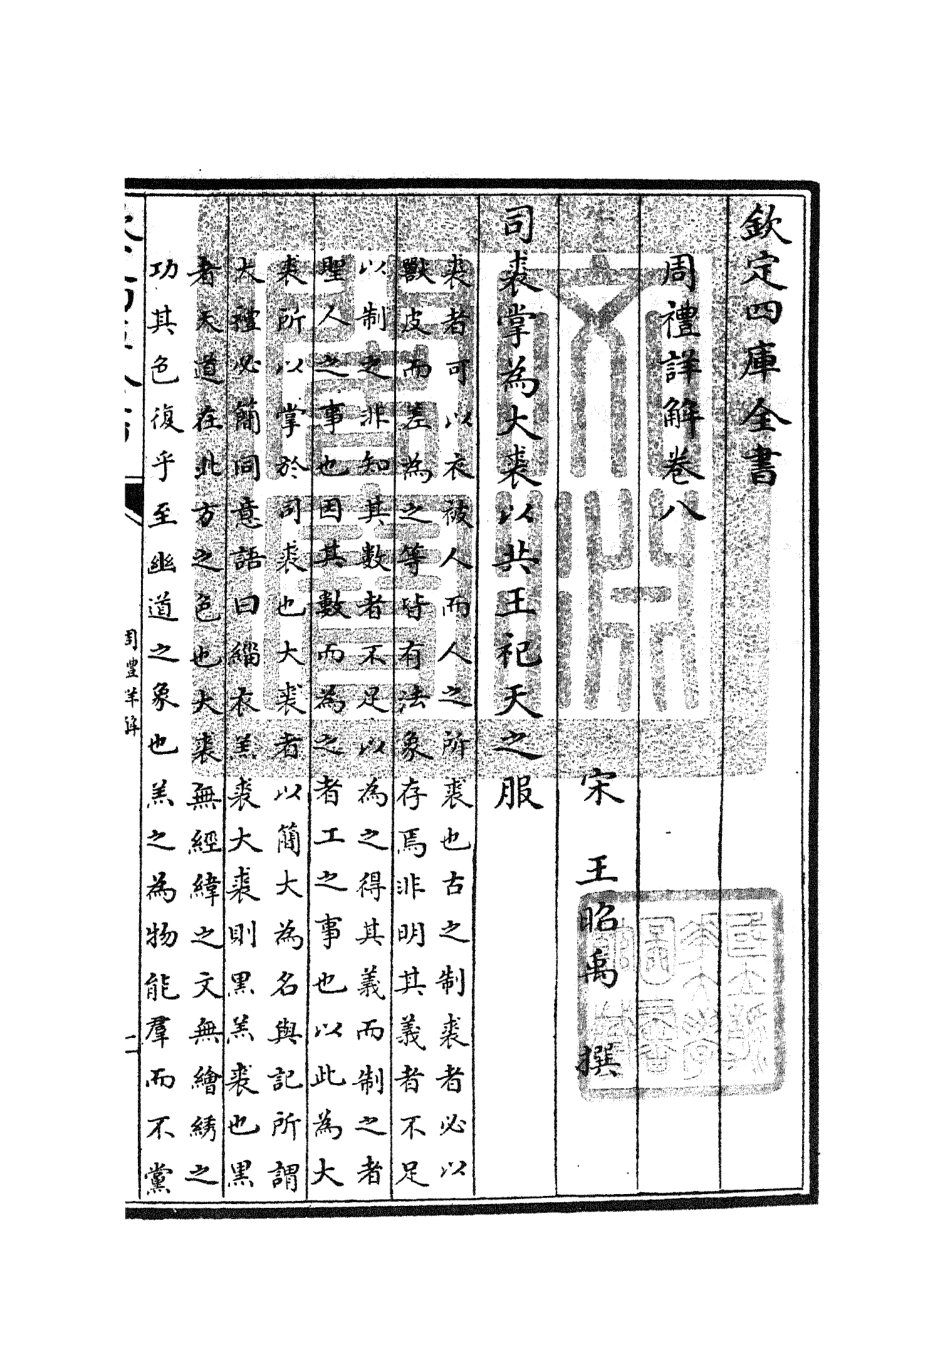 欽定四庫全書
周禮詳解卷八
宋 王昭禹 撰
司裘掌為大裘以共王祀天之服
裘者可以衣被人而人之所裘也古之制裘者必以
獸皮而差為之等皆有法象存焉非明其義者不足
以制之非知其數者不足以為之得其義而制之者
聖人之事也因其數而為之者工之事也以此為大
裘所以掌於司裘也大裘者以簡大為名與記所謂
大禮必簡同意語曰緇衣羔裘大裘則黑羔裘也黑
者天道在北方之色也大裘無經緯之文無繪綉之
功其色復乎至幽道之象也羔之為物能羣而不黨
周禮詳解